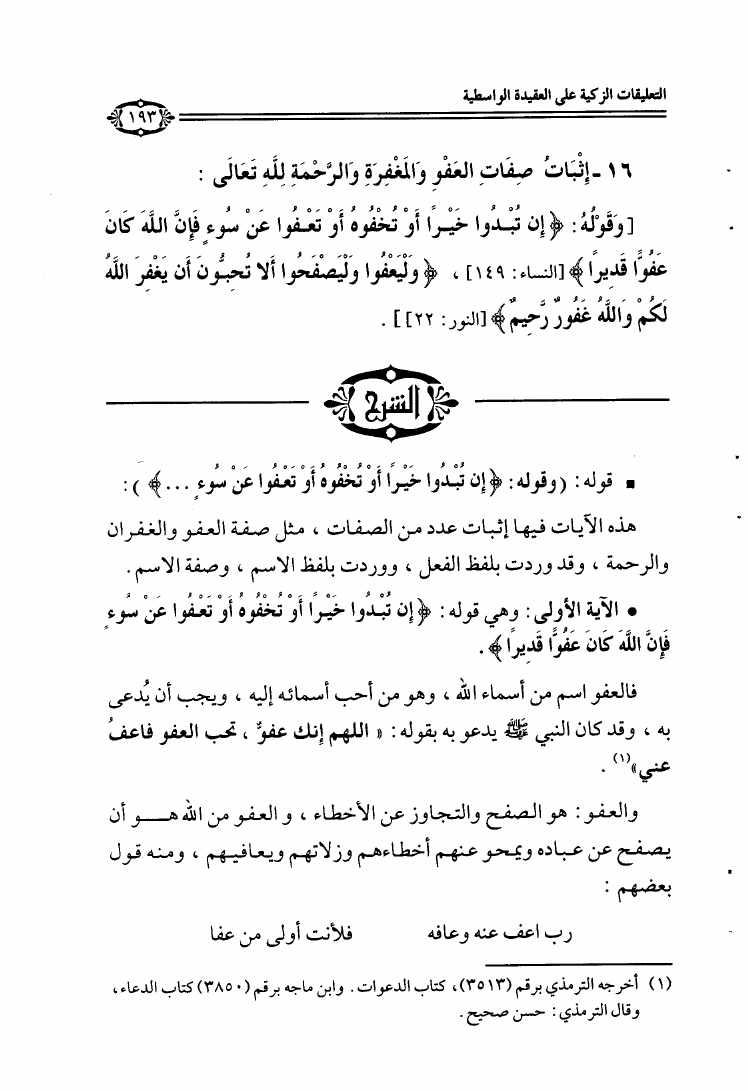 التعليقات الزكية على العقيدة الواسطية
١٩٣
١٦ - إِثْبَاتُ صِفَاتِ العَفْوِ وَالمَغْفِرَةِ وَالرَّحْمَةِ لِلَّهِ تَعَالَى :
[وَقَوْلُهُ: ﴿إِن تُبْدُوا خَيْرًا أَوْ تُخْفُوهُ أَوْ تَعْفُوا عَنْ سُوءٍ فَإِنَّ اللَّهَ كَانَ
عَفُوًّا قَدِيرًا﴾ [النساء: ١٤٩] ، ﴿وَلْيَعْفُوا وَلْيَصْفَحُوا أَلا تُحِبُّونَ أَن يَغْفِرَ اللَّهُ
لَكُمْ وَاللَّهُ غَفُورٌ رَّحِيمٌ﴾ [النور: ٢٢]] .
الشرح
▪ قوله: (وقوله: ﴿إِن تُبْدُوا خَيْرًا أَوْ تُخْفُوهُ أَوْ تَعْفُوا عَنْ سُوءٍ ...﴾ ) :
هذه الآيات فيها إثبات عدد من الصفات ، مثل صفة العفو والغفران
والرحمة ، وقد وردت بلفظ الفعل ، ووردت بلفظ الاسم ، وصفة الاسم .
• الآية الأولى: وهي قوله: ﴿إِن تُبْدُوا خَيْرًا أَوْ تُخْفُوهُ أَوْ تَعْفُوا عَنْ سُوءٍ
فَإِنَّ اللَّهَ كَانَ عَفُوًّا قَدِيرًا﴾ .
فالعفو اسم من أسماء الله ، وهو من أحب أسمائه إليه ، ويجب أن يُدعى
به ، وقد كان النبي ﷺ يدعو به بقوله: « اللهم إنك عفوٌ ، تحب العفو فاعفُ
عني»(١) .
والعفو: هو الصفح والتجاوز عن الأخطاء ، و العفو من الله هـو أن
يصفح عن عباده ويمحو عنهم أخطاءهم وزلاتهم ويعافيهم ، ومنه قول
بعضهم :
رب اعف عنه وعافه فلأنت أولى من عفا
(١) أخرجه الترمذي برقم (٣٥١٣)، كتاب الدعوات. وابن ماجه برقم (٣٨٥٠) كتاب الدعاء،
وقال الترمذي: حسن صحيح.